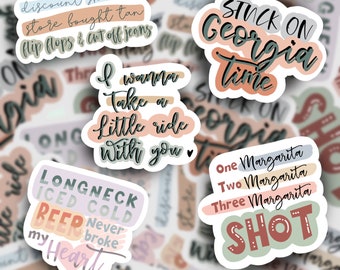 discount
store bought tan
flip flops & cut off jeans
STUCK ON
Georgia
TIME
I wanna
Take a
Little ride
With you
LONGNECK
ICED COLD
BEER Never
broke
my Heart
One Margarita
Two Margarita
Three Margarita
SHOT